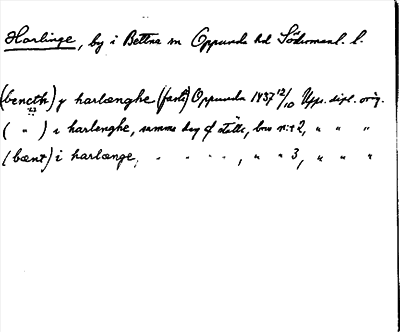 Harlinge, by i Bettna sn Oppunda hd Södermanl. l.
(bencth) y harlænghe (fasti) Oppunda 1437 12/10 Upps. dipl. orig.
( " ) i harlenghe, samma dag o ställe, brev nr: 2, " " "
(bænt) i harlænge, " " " ", " " 3, " " "